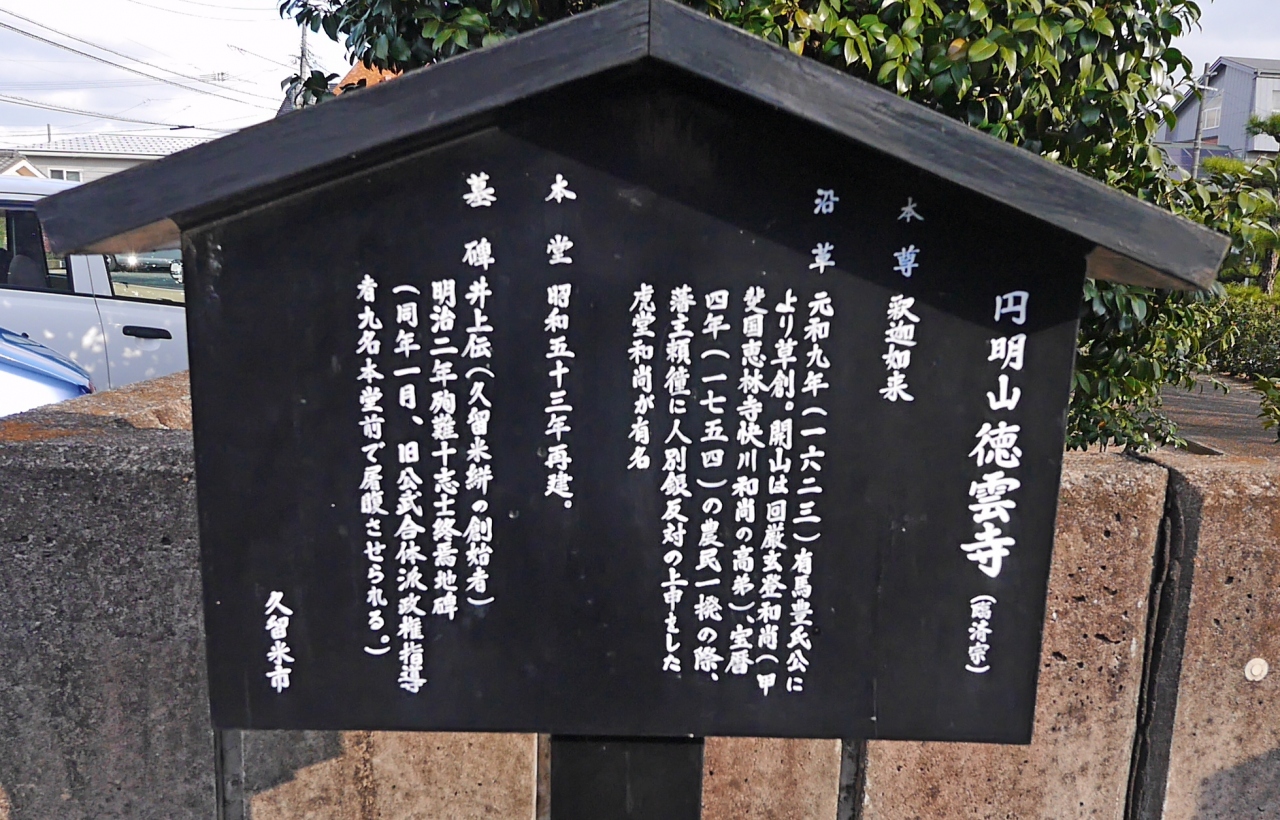 円明山 徳雲寺(臨済宗)
本尊 釈迦如来
沿革 元和九年(一六二三)有馬豊氏公に
より草創。開山は回厳玄登和尚(甲
斐国恵林寺快川和尚の高弟)、宝暦
四年(一七五四)の農民一揆の際、
藩主頼徸に人別銀反対の上申をした
虎堂和尚が有名
本堂 昭和五十三年再建。
墓碑 井上伝(久留米絣の創始者)
明治二年殉難十志士終焉地碑
(同年一月、旧公武合体派政権指導
者九名本堂前で屠腹させられる。)
久留米市